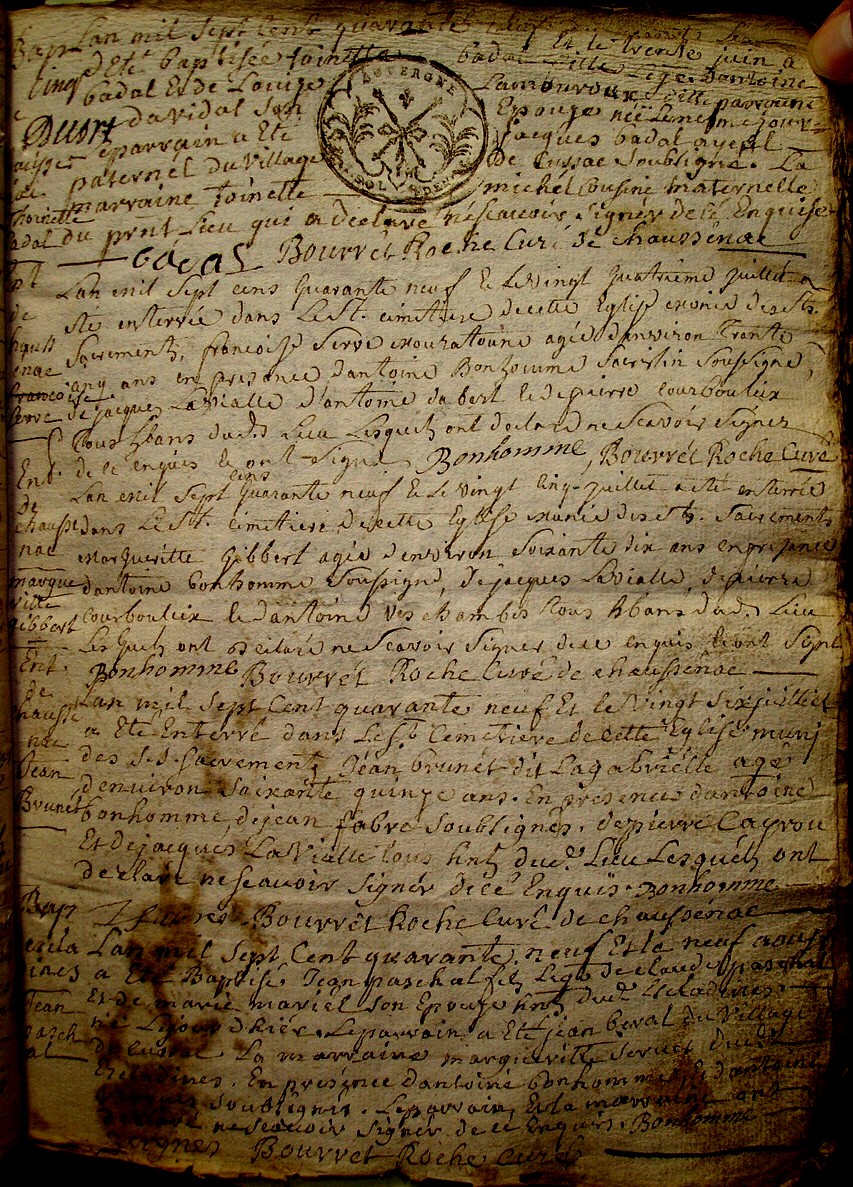 Lan mil sept Cent quarante neuf Et le trente juin a
Eté baptisée toinette badal fille Lég. dantoine
badal Et de Louise Lamouroux
davidal son Epouze née le meme jour
Le parrain a Eté jacques badal ayeul
paternel du village De cussac soubsigné. La
marraine toinette michel Cousine maternelle
du prnt Lieu qui a déclaré nescavoir signer de cé Enquise
badal Bourret Roche Curé de chaussenac
Lan mil sept cens quarante neuf & le vingt quatrieme juillet a
été enterrée dans le St. cimetiere de cette Eglise munie des Sts.
Sacrements, francoise Serve mouratoune agée denviron Trante
cinq ans en presance dantoine Bonhomme Sacristin soussigné,
de jacques Lavialle d'antoine dabert & de pierre courbouleix
tous hbans dud. Lieu Lesquels ont declaré ne scavoir signer
de ce enquis & ont signé Bonhomme, Bourret Roche Curé
Lan mil sept cens quarante neuf & le vingt cinq juillet a eté enterrée
dans le St. cimetiere de cette Eglise munie des Sts. Sacrements
Margueritte Gibbert agée denviron soixante dix ans en presance
dantoine bonhomme soussigné, de jacques Lavialle, de pierre
courbouleix & dantoine veschambes tous hbans dud. Lieu
Lesquels ont declaré ne scavoir signer de ce enquis & ont signé
Bonhomme Bourret Roche Curé de chaussenac
Lan mil sept Cent quarante neuf Et le vingt six juilliet
a Eté Enterré dans le St. Cemetiere de cette Eglise muni
des S.S. Sacrements Jean brunet dit Lagabrielle agé
denviron soixante quinze ans. En presence dantoine
bonhomme, de jean fabre soubsignés. de pierre Cayrou
Et de jacques Lavialle tous hnts dud. Lieu Lesquels ont
declaré nescavoir signer de cé Enquis. Bonhomme
Bourret Roche Curé de chaussenac
Lan mil sept Cent quarante neuf Et le neuf aoust
a Eté Baptisé Jean paschal fils Lég. de claude paschal
Et de marie mariel son Epouze hnts dud. Escladines
né Le jour dhier. Le parrain a Eté jean beral du village
de cussac La marraine margueritte servet dud.
Escladines. En presence dantoine bonhomme & dantoine
soubsignés. Le parrain Et la marraine ont
declaré nescavoir signer de cé Enquis. Bonhomme
Bourret Roche Curé
Ent.
de
chausse
nac
francoise
serve
Ent.
de
chausse
nac
margue
ritte
gibbert
Ent.
de
chausse
nac
Jean
Brunét
Bap
Escla
dines
Jean
pasch
al
AUVERGNE